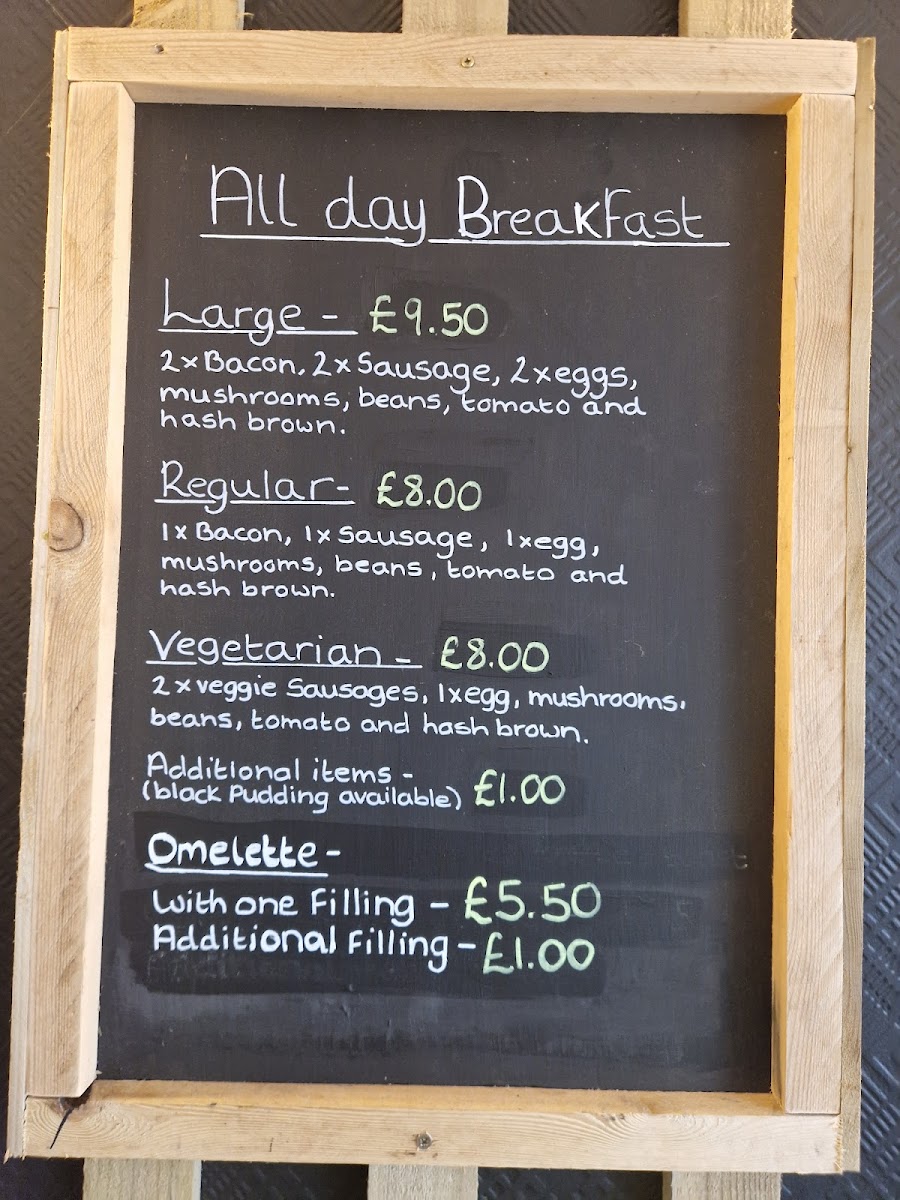 All day Breakfast
Large - £9.50
2x Bacon, 2x Sausage, 2xeggs,
mushrooms, beans, tomato and
hash brown.
Regular- £8.00
1x Bacon, 1x Sausage, 1xegg,
mushrooms, beans, tomato and
hash brown.
Vegetarian - £8.00
2x veggie Sausages, 1xegg, mushrooms.
beans, tomato and hash brown.
Additional items -
(black Pudding available) £1.00
Omelette -
With one Filling - £5.50
Additional Filling - £1.00